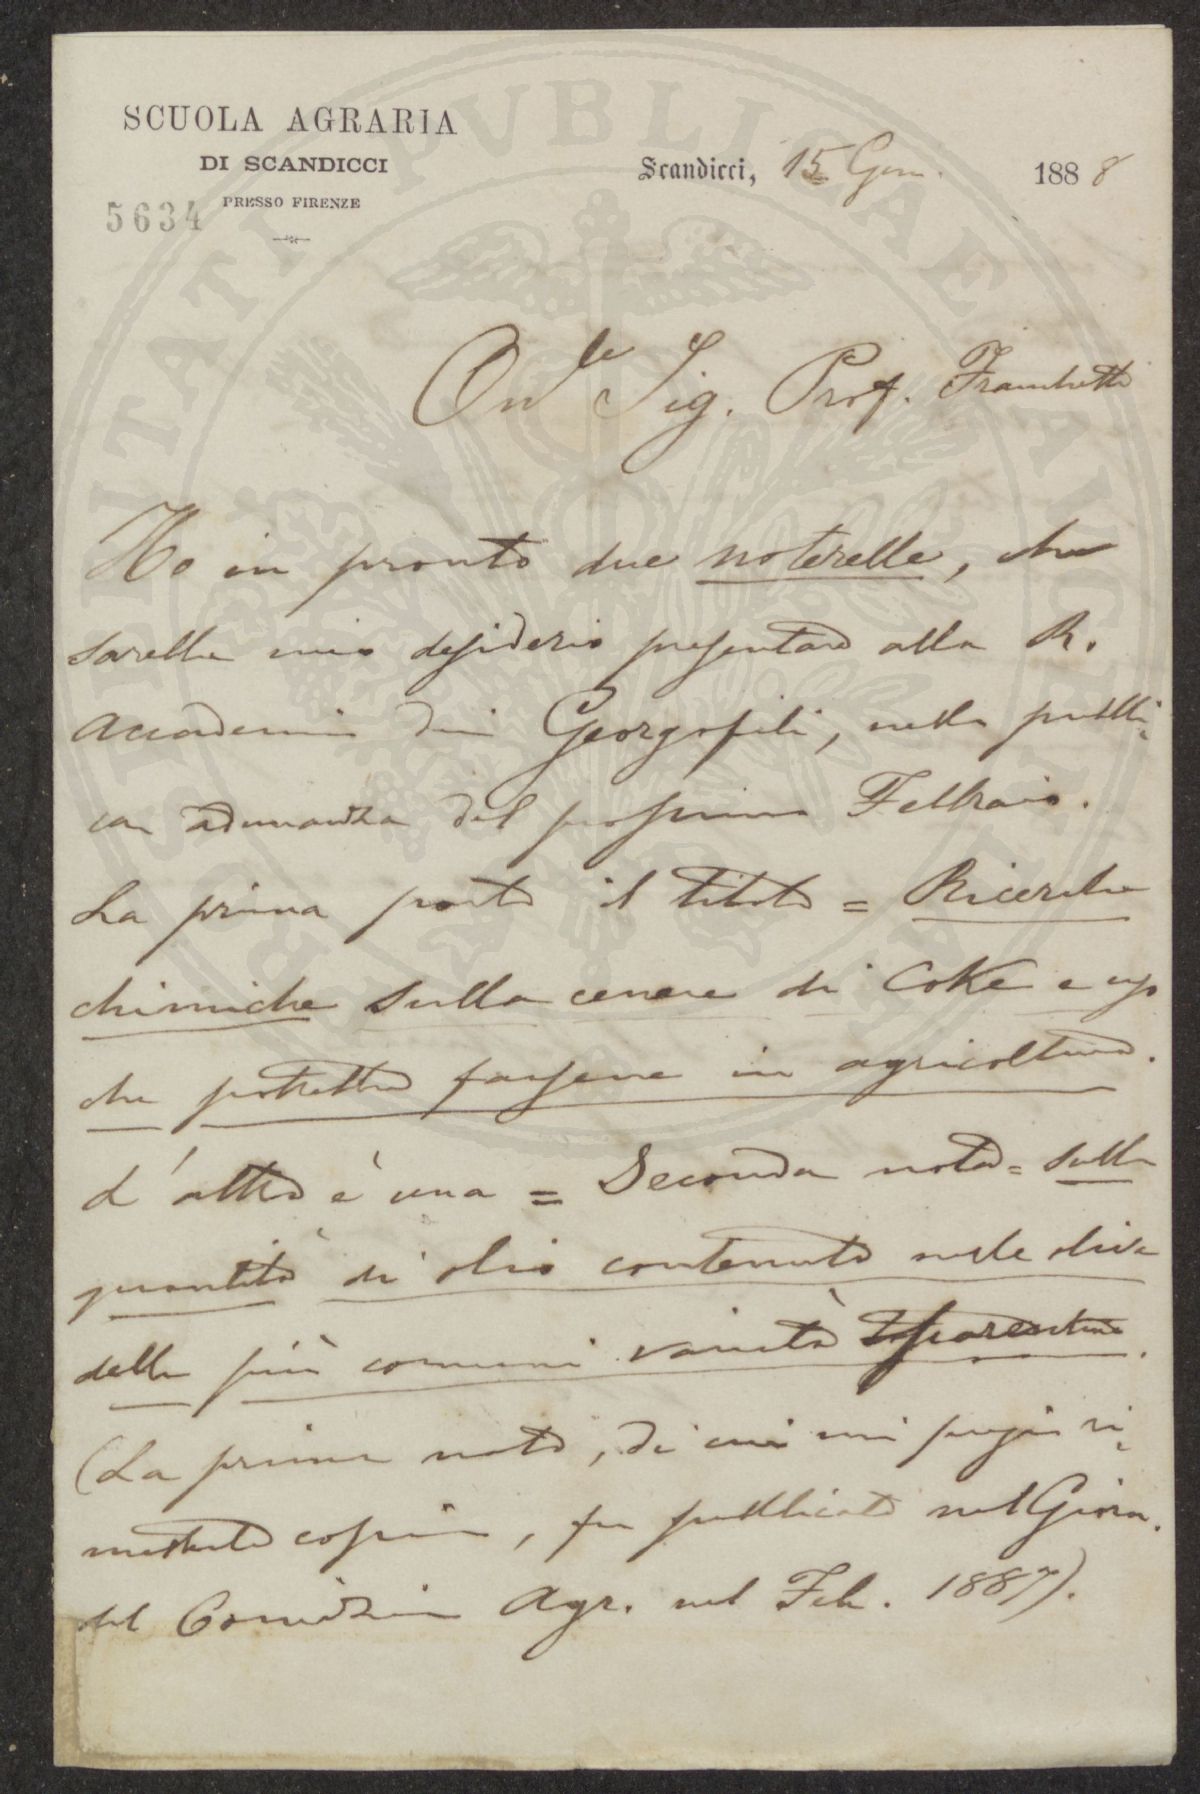 SCUOLA AGRARIA
DI SCANDICCI
PRESSO FIRENZE
5634
Scandicci, 15 Gen. 1888
On.le Sig. Prof. Franchetti
Ho in pronto due noterelle, che
sarebbe mio desiderio presentare alla R.
Accademia dei Georgofili, nella pubbli-
ca adunanza del prossimo Febbraio.
La prima porta il titolo = Ricerche
chimiche sulla cenere di Coke e uso
che potrebbe farsene in agricoltura.
L'altra è una = Seconda nota = sulla
quantità di olio contenuto nelle olive
delle più comuni varietà
(La prima nota, di cui mi pregio ri-
metterle copia, fu pubblicata nel Giorn.
del Comizio Agr. nel Feb. 1887).
PVBLICAE